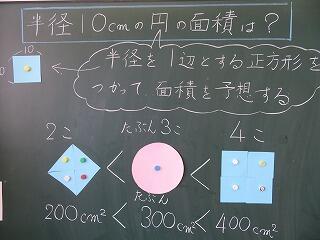 半径10cmの円の面積は？
10
半径を1辺とする正方形を
つかって、面積を予想する
2こ たぶん3こ 4こ
< <
たぶん
200cm² < 300cm² < 400cm²